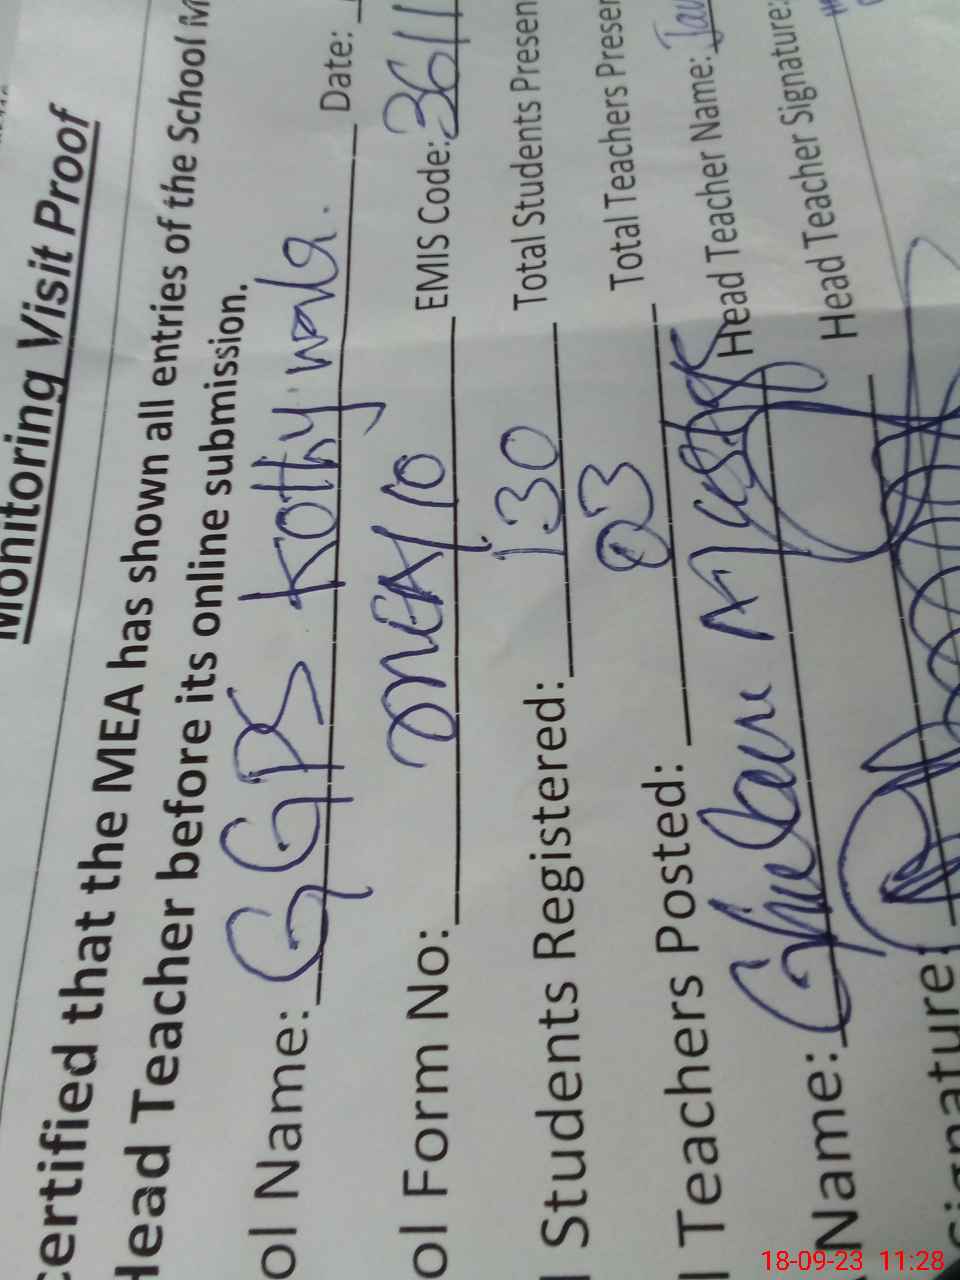 Monitoring Visit Proof
ertified that the MEA has shown all entries of the School M
Head Teacher before its online submission.
ol Name: GGPS Kothy wala. Date:
ol Form No: EMIS Code: 3611
l Students Registered: 130 Total Students Presen
l Teachers Posted: 03 Total Teachers Presen
Name: Ghulam Head Teacher Name: Jav
Signature: Head Teacher Signature:
18-09-23 11:28